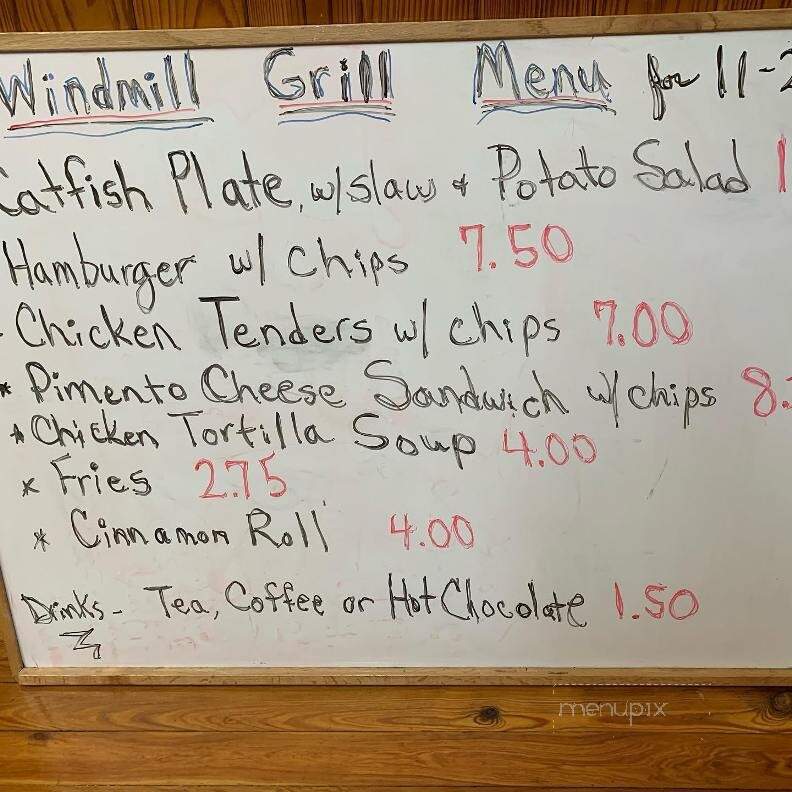 Windmill Grill Menu for 11-2
Catfish Plate, w/slaw & Potato Salad 1
Hamburger w/ Chips 7.50
- Chicken Tenders w/ chips 7.00
* Pimento Cheese Sandwich w/ chips 8.
* Chicken Tortilla Soup 4.00
* Fries 2.75
* Cinnamon Roll 4.00
Drinks - Tea, Coffee or Hot Chocolate 1.50
menupix